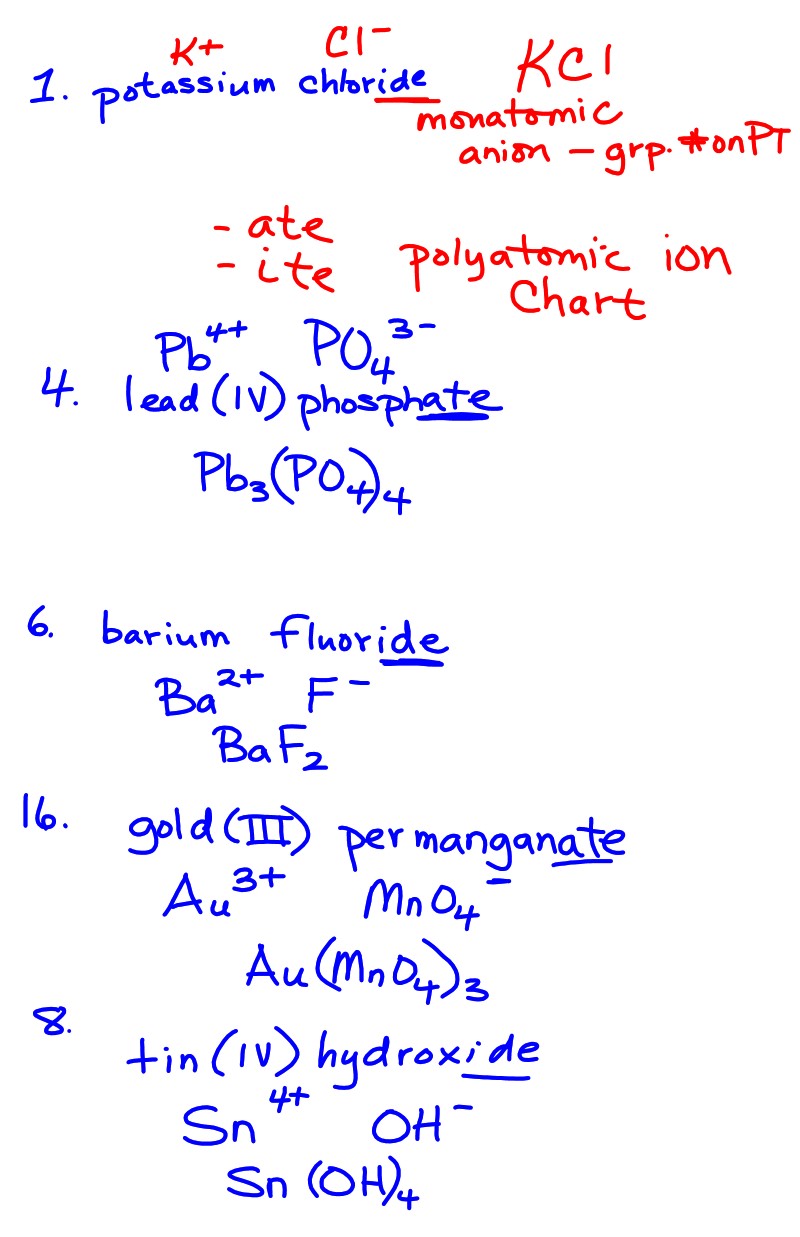 K+ Cl⁻ KCl
1. potassium chloride
monatomic
anion – grp. # on PT
- ate
- ite polyatomic ion
Chart
Pb⁴⁺ PO₄³⁻
4. lead (IV) phosphate
Pb₃(PO₄)₄
6. barium fluoride
Ba²⁺ F⁻
BaF₂
16. gold (III) permanganate
Au³⁺ MnO₄⁻
Au(MnO₄)₃
8.
tin (IV) hydroxide
Sn⁴⁺ OH⁻
Sn(OH)₄